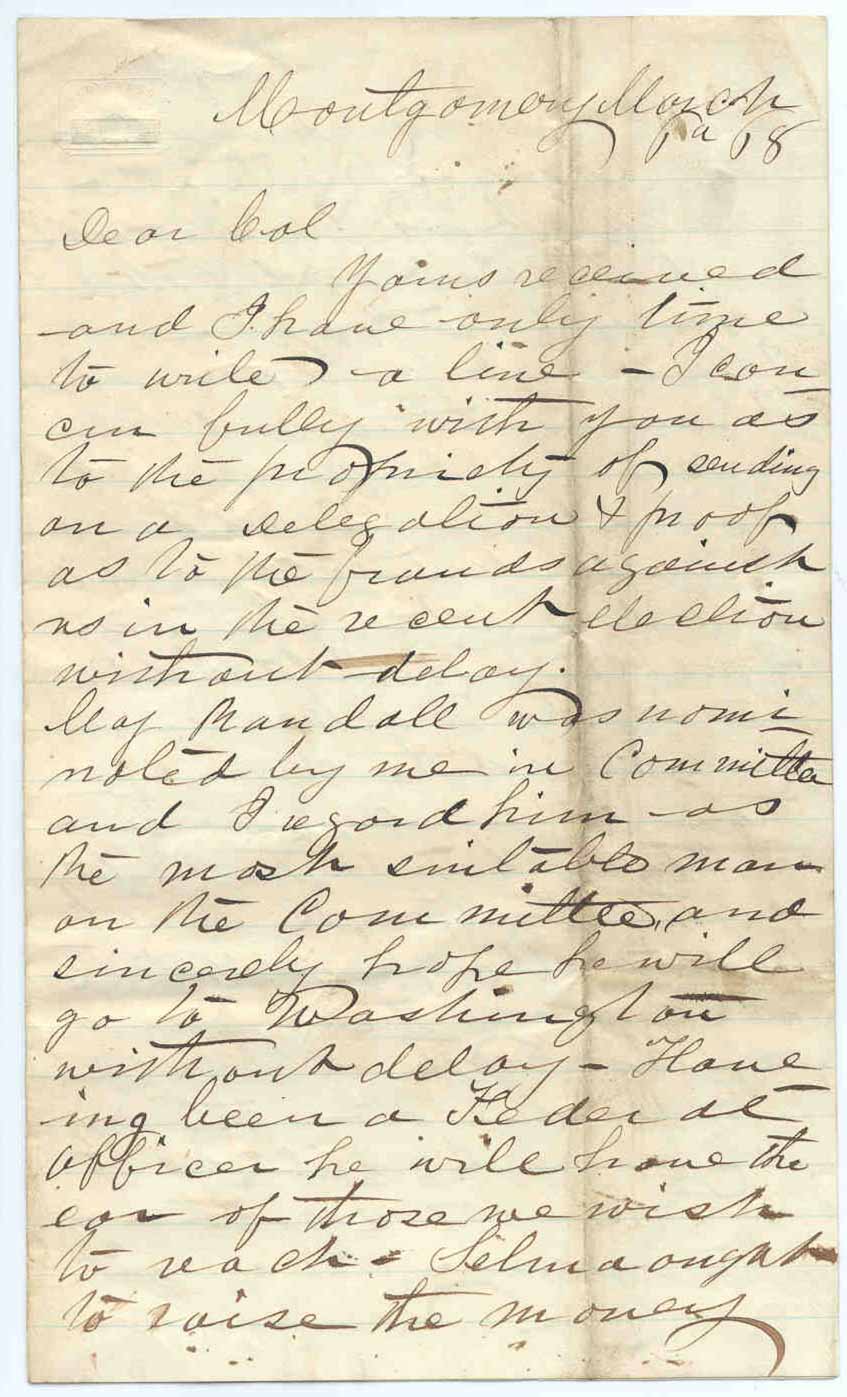 Montgomery March
18
Dear Col
Yours received
and I have only time
to write a line - I con
cur fully with you as
to the propriety of sending
on a delegation & proof
as to the frauds against
us in the recent election
without delay.
Maj Randall was nomi
nated by me in Committee
and I regard him as
the most suitable man
on the Committee, and
sincerely hope he will
go to Washington
without delay - Have
ing been a Federal
officer he will have the
ear of those we wish
to reach - Selma ought
to raise the money